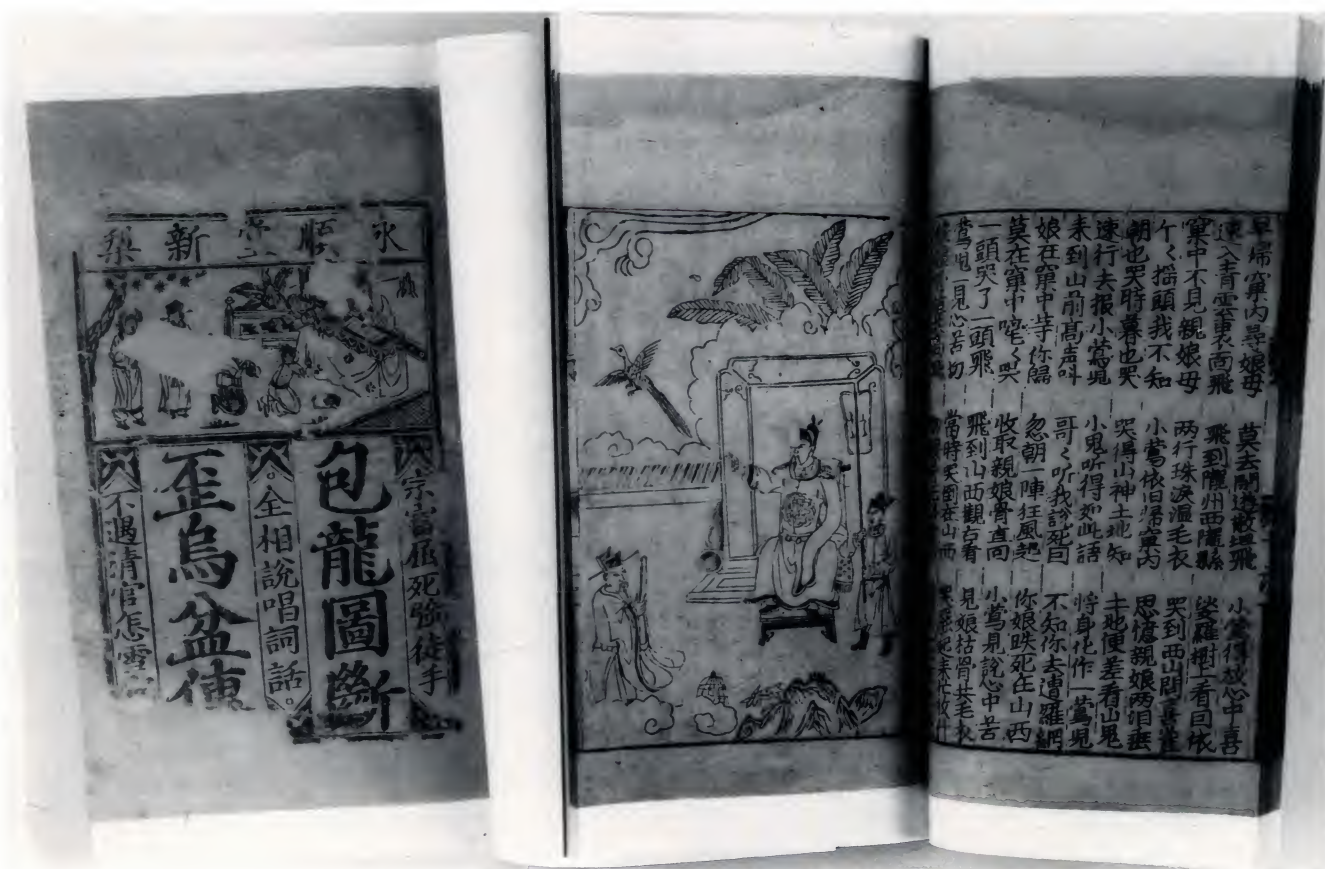 永順堂新
宗富屈死強徒手
包龍圖斷
全相說唱詞話
歪烏盆傳
不遇清官怎雪
早歸窠内尋娘母 莫去閑遊散誕飛 小鶯得放心中喜
速入青雲裏面飛 飛到隴州西隴縣 娑羅樹上看囘依
窠中不見親娘母 兩行珠淚濕毛衣 哭到西山閗喜雀
个〻搖頭我不知 小鶯依旧歸窠内 思憶親娘两泪垂
朝也哭時暮也哭 哭得山神土地知 土地便差看山鬼
速行去报小鶯児 小鬼听得如此語 將身化作一鶯児
来到山前髙声呌 哥〻听我說死曰 不知你去遭羅網
娘在窠中等你歸 忽朝一陣狂風起 你娘跌死在山西
莫在窠中啼〻哭 收取親娘骨直向 小鶯見說心中苦
一頭哭了一頭飛 飛到山西觀右看 見娘枯骨共毛衣
鶯児一見心苦切 當時哭倒在山西